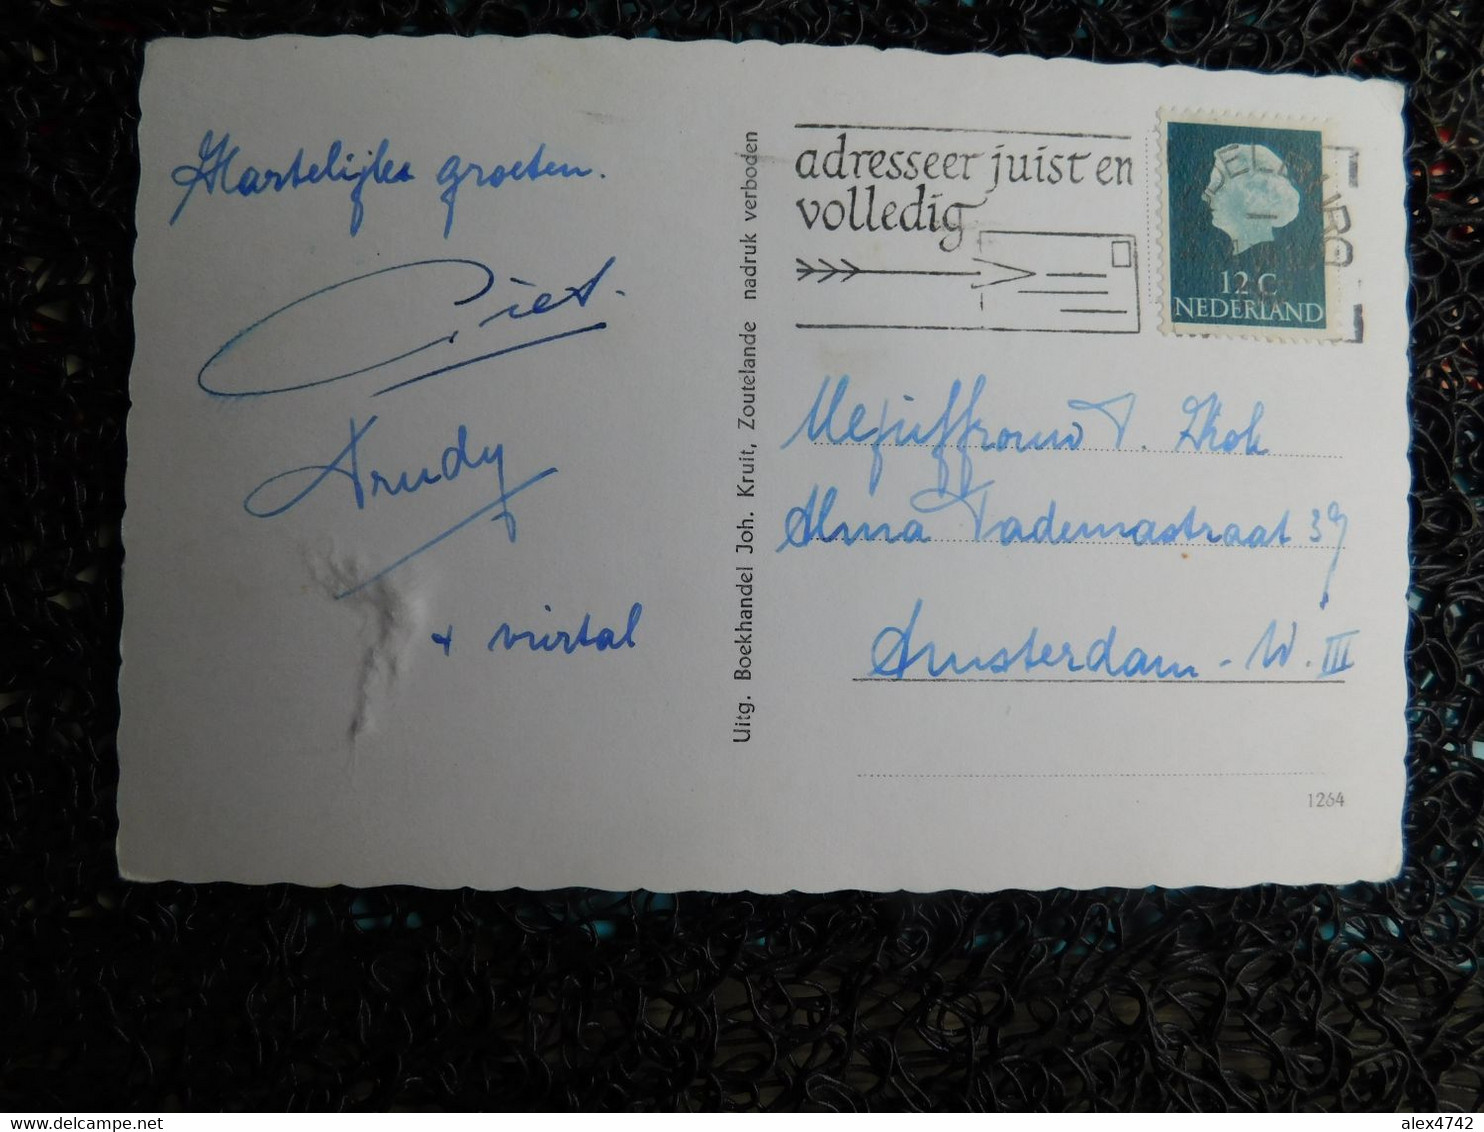 Hartelijke groeten.
Piet.
Trudy
+ vriital
Uitg. Boekhandel Joh. Kruit, Zoutelande nadruk verboden
adresseer juist en
volledig
12 C
NEDERLAND
Mejuffrouw T. Kok
Alma Tademastraat 39
Amsterdam - W. III
1264
alex4742